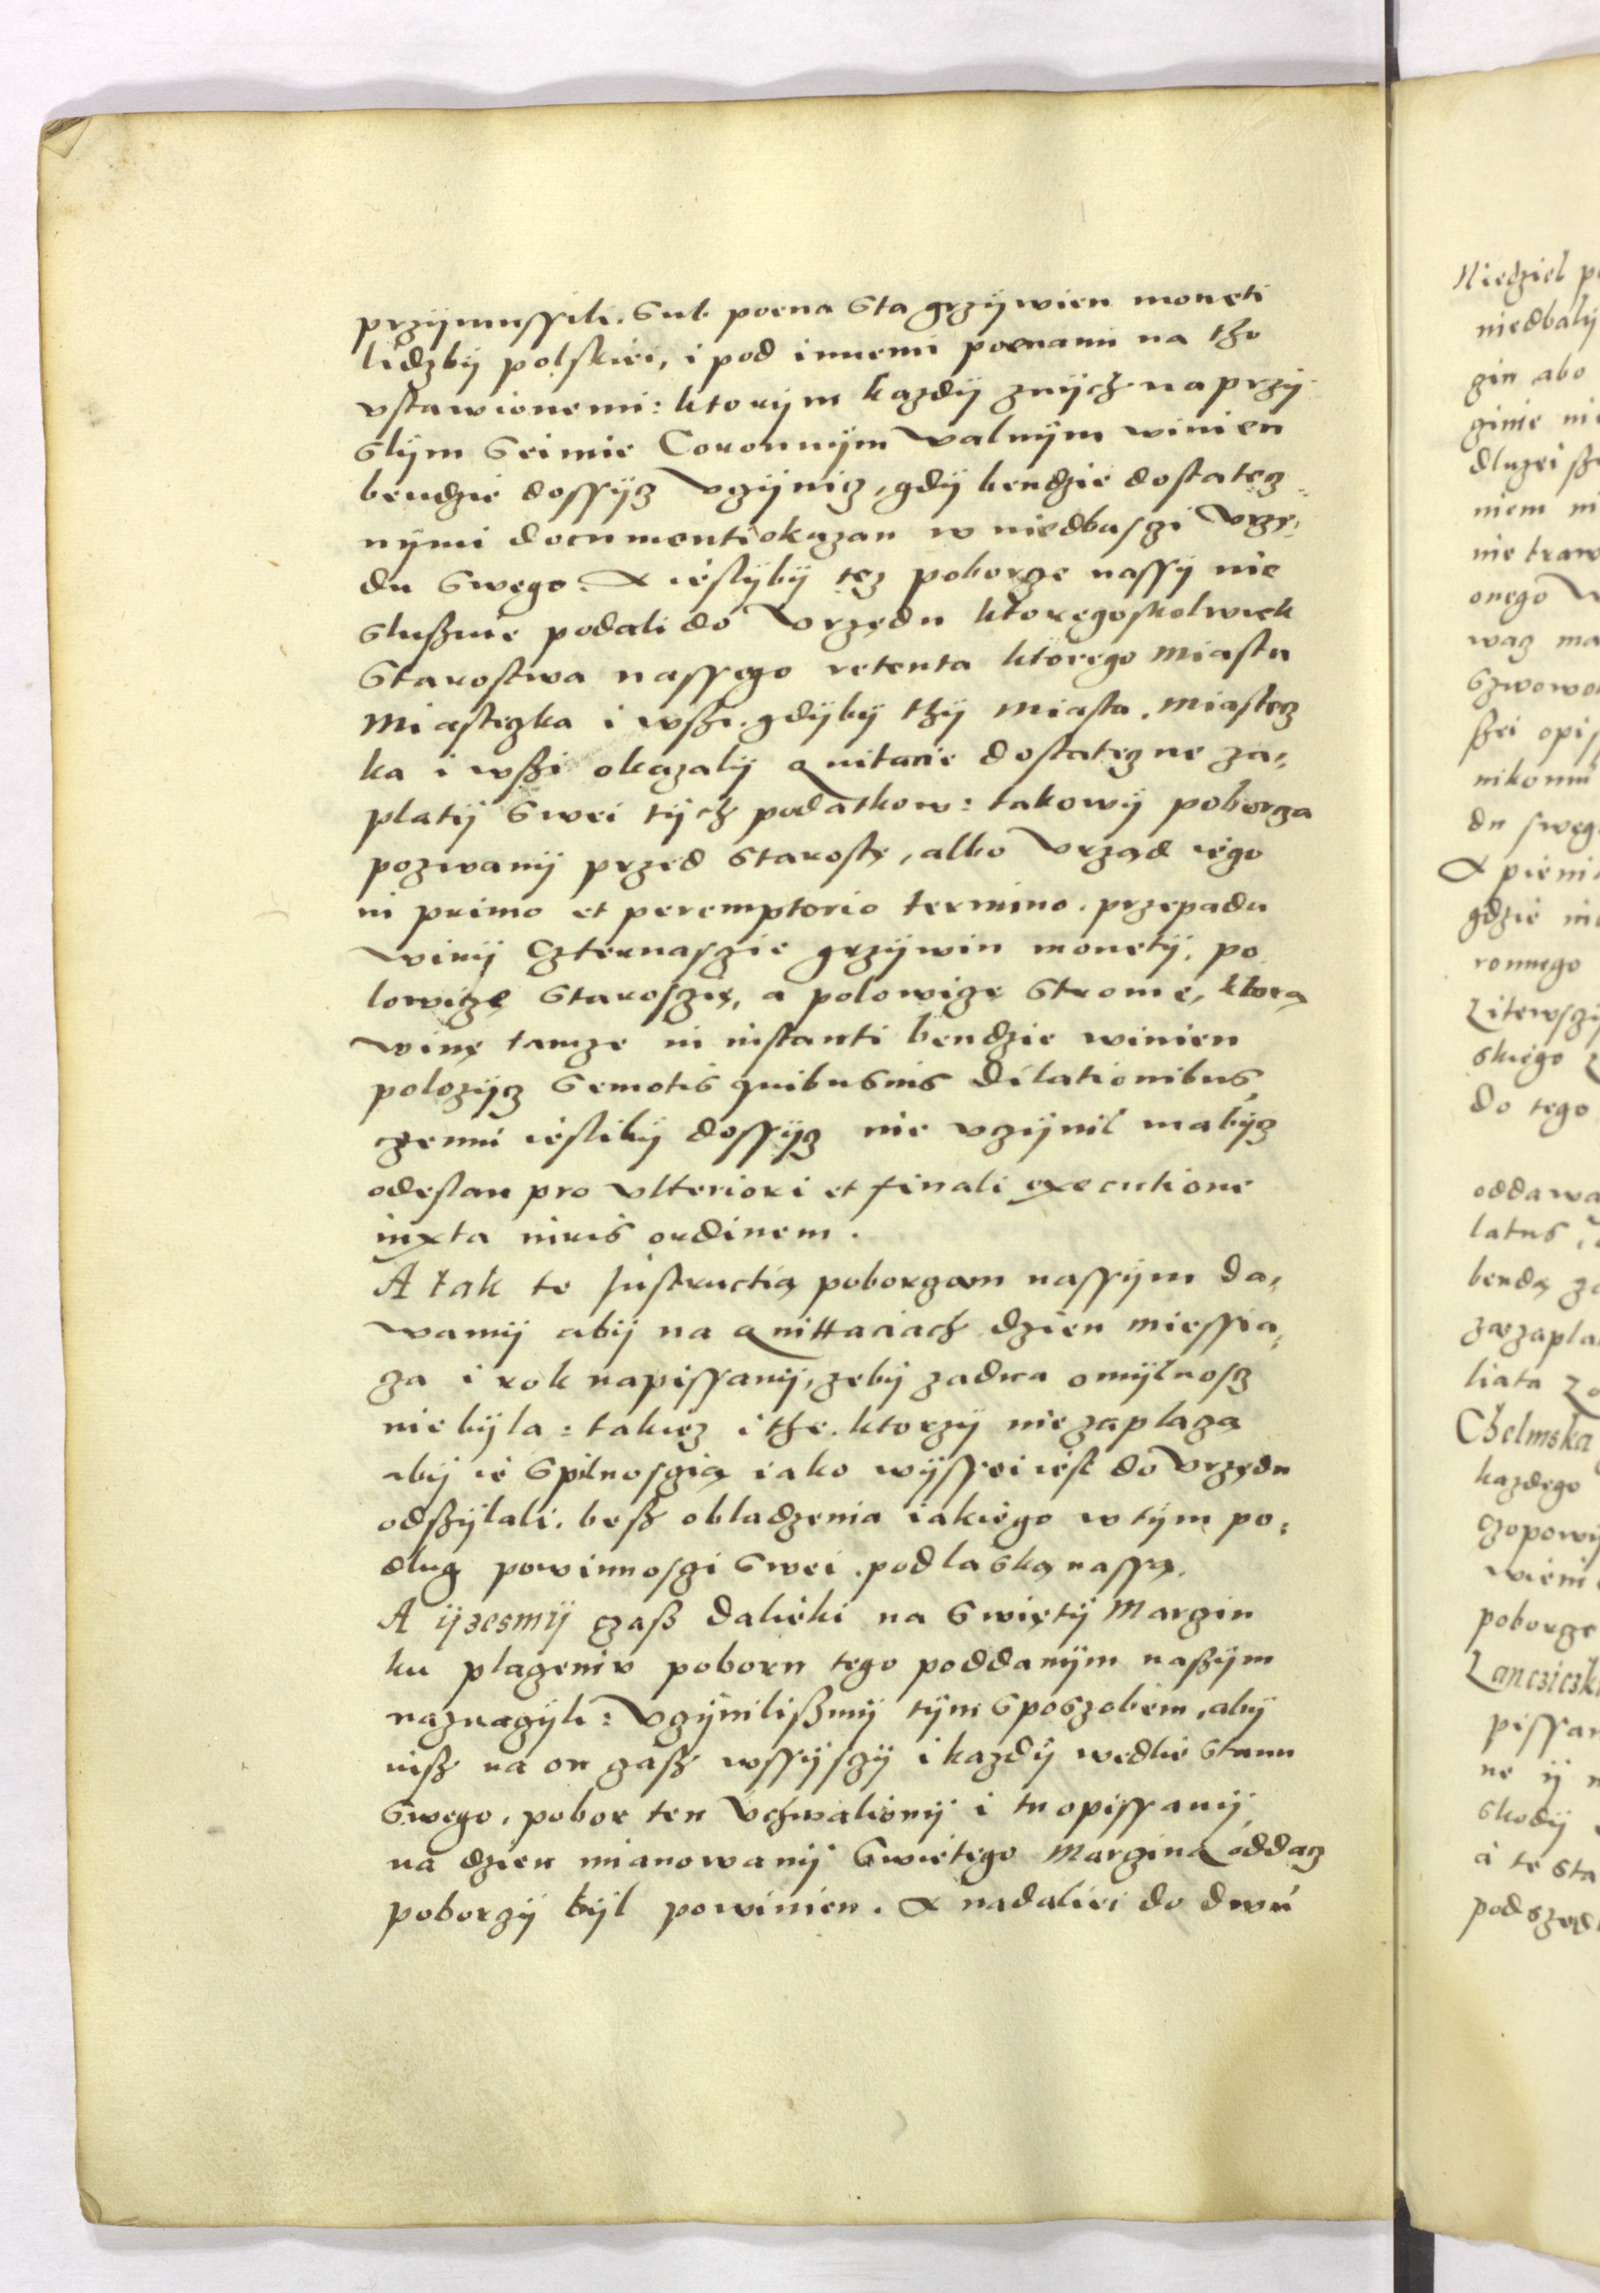 przÿmussili. Sub poena Sta grzÿwien moneti
lidzbÿ polskiei, i pod innemi poenami na tho
vstawionemi: ktorÿm kazdÿ znÿch na przÿ
slÿm Seimie Coronnÿm Walnÿm winien
bendzie dossÿcz Vczÿnicz, gdÿ bendzie dostatecz=
nÿmi documenti okazan w niedbasczi Vrzę,
du Swego. A ieslÿbÿ tez poborcze nassÿ nie
Slusznie podali do Vrzędu ktoregoskolwiek
Starostwa nassego retenta ktorego Miasta
Miasteczka i wszi. gdÿbÿ thÿ Miasta. Miastecz
ka i wszi okazalÿ Quitacie dostateczne za,
platÿ Swei tÿch podatkow: takowÿ poborcza
pozwanÿ przed Starostę, albo Vrząd iego
in primo et peremptorio termino. przepada
Winÿ Czternasczie grzÿwin monetÿ, po
lowiczę Staroszczię, a polowiczę Stronie, ktorą
Winę tamze in instanti bendzie winien
polozÿcz Semotis quibusuis dilationibus
czemu iesliby dossÿcz nie vczÿnil ma bÿcz
odeslan pro vlteriori et finali executione
iuxta iuris ordinem.
A tak te Instructią poborczam nassÿm da,
wamÿ abÿ na Quittaciach dzien miessią,
cza i rok napissanÿ, zebÿ zadna omÿlnoscz
nie bÿla: takiez i the. ktorzÿ nie zaplaczą
abÿ ie Spilnosczią iako wÿssei iest do Vrzędu
odszÿlali. besz obladzenia iakiego w tÿm po=
dlug powinnosczi Swei. pod laską nassą.
A ÿzesmÿ czasz dalieki na Swiętÿ Marczin
ku placzeniu poboru tego poddanÿm naszÿm
naznaczÿli: Vczÿnilismÿ tÿm Sposzobem, abÿ
nisz na on czasz wssÿsczÿ i kazdÿ wedlie Stanu
Swego, pobor ten Vchwalionÿ i tu opissanÿ,
na dzien mianowanÿ Swietego Marczina oddacz
poborczÿ bÿl powinien. A nadaliei do dwu
Niedziel
niedbalÿ
abo
nikomu
onego
du sweg
A pieni
gdzie
ronnego
skiego
do tego
oddawa
latus
bendą
liata
Chelmska
kazdego
poborcze
a te